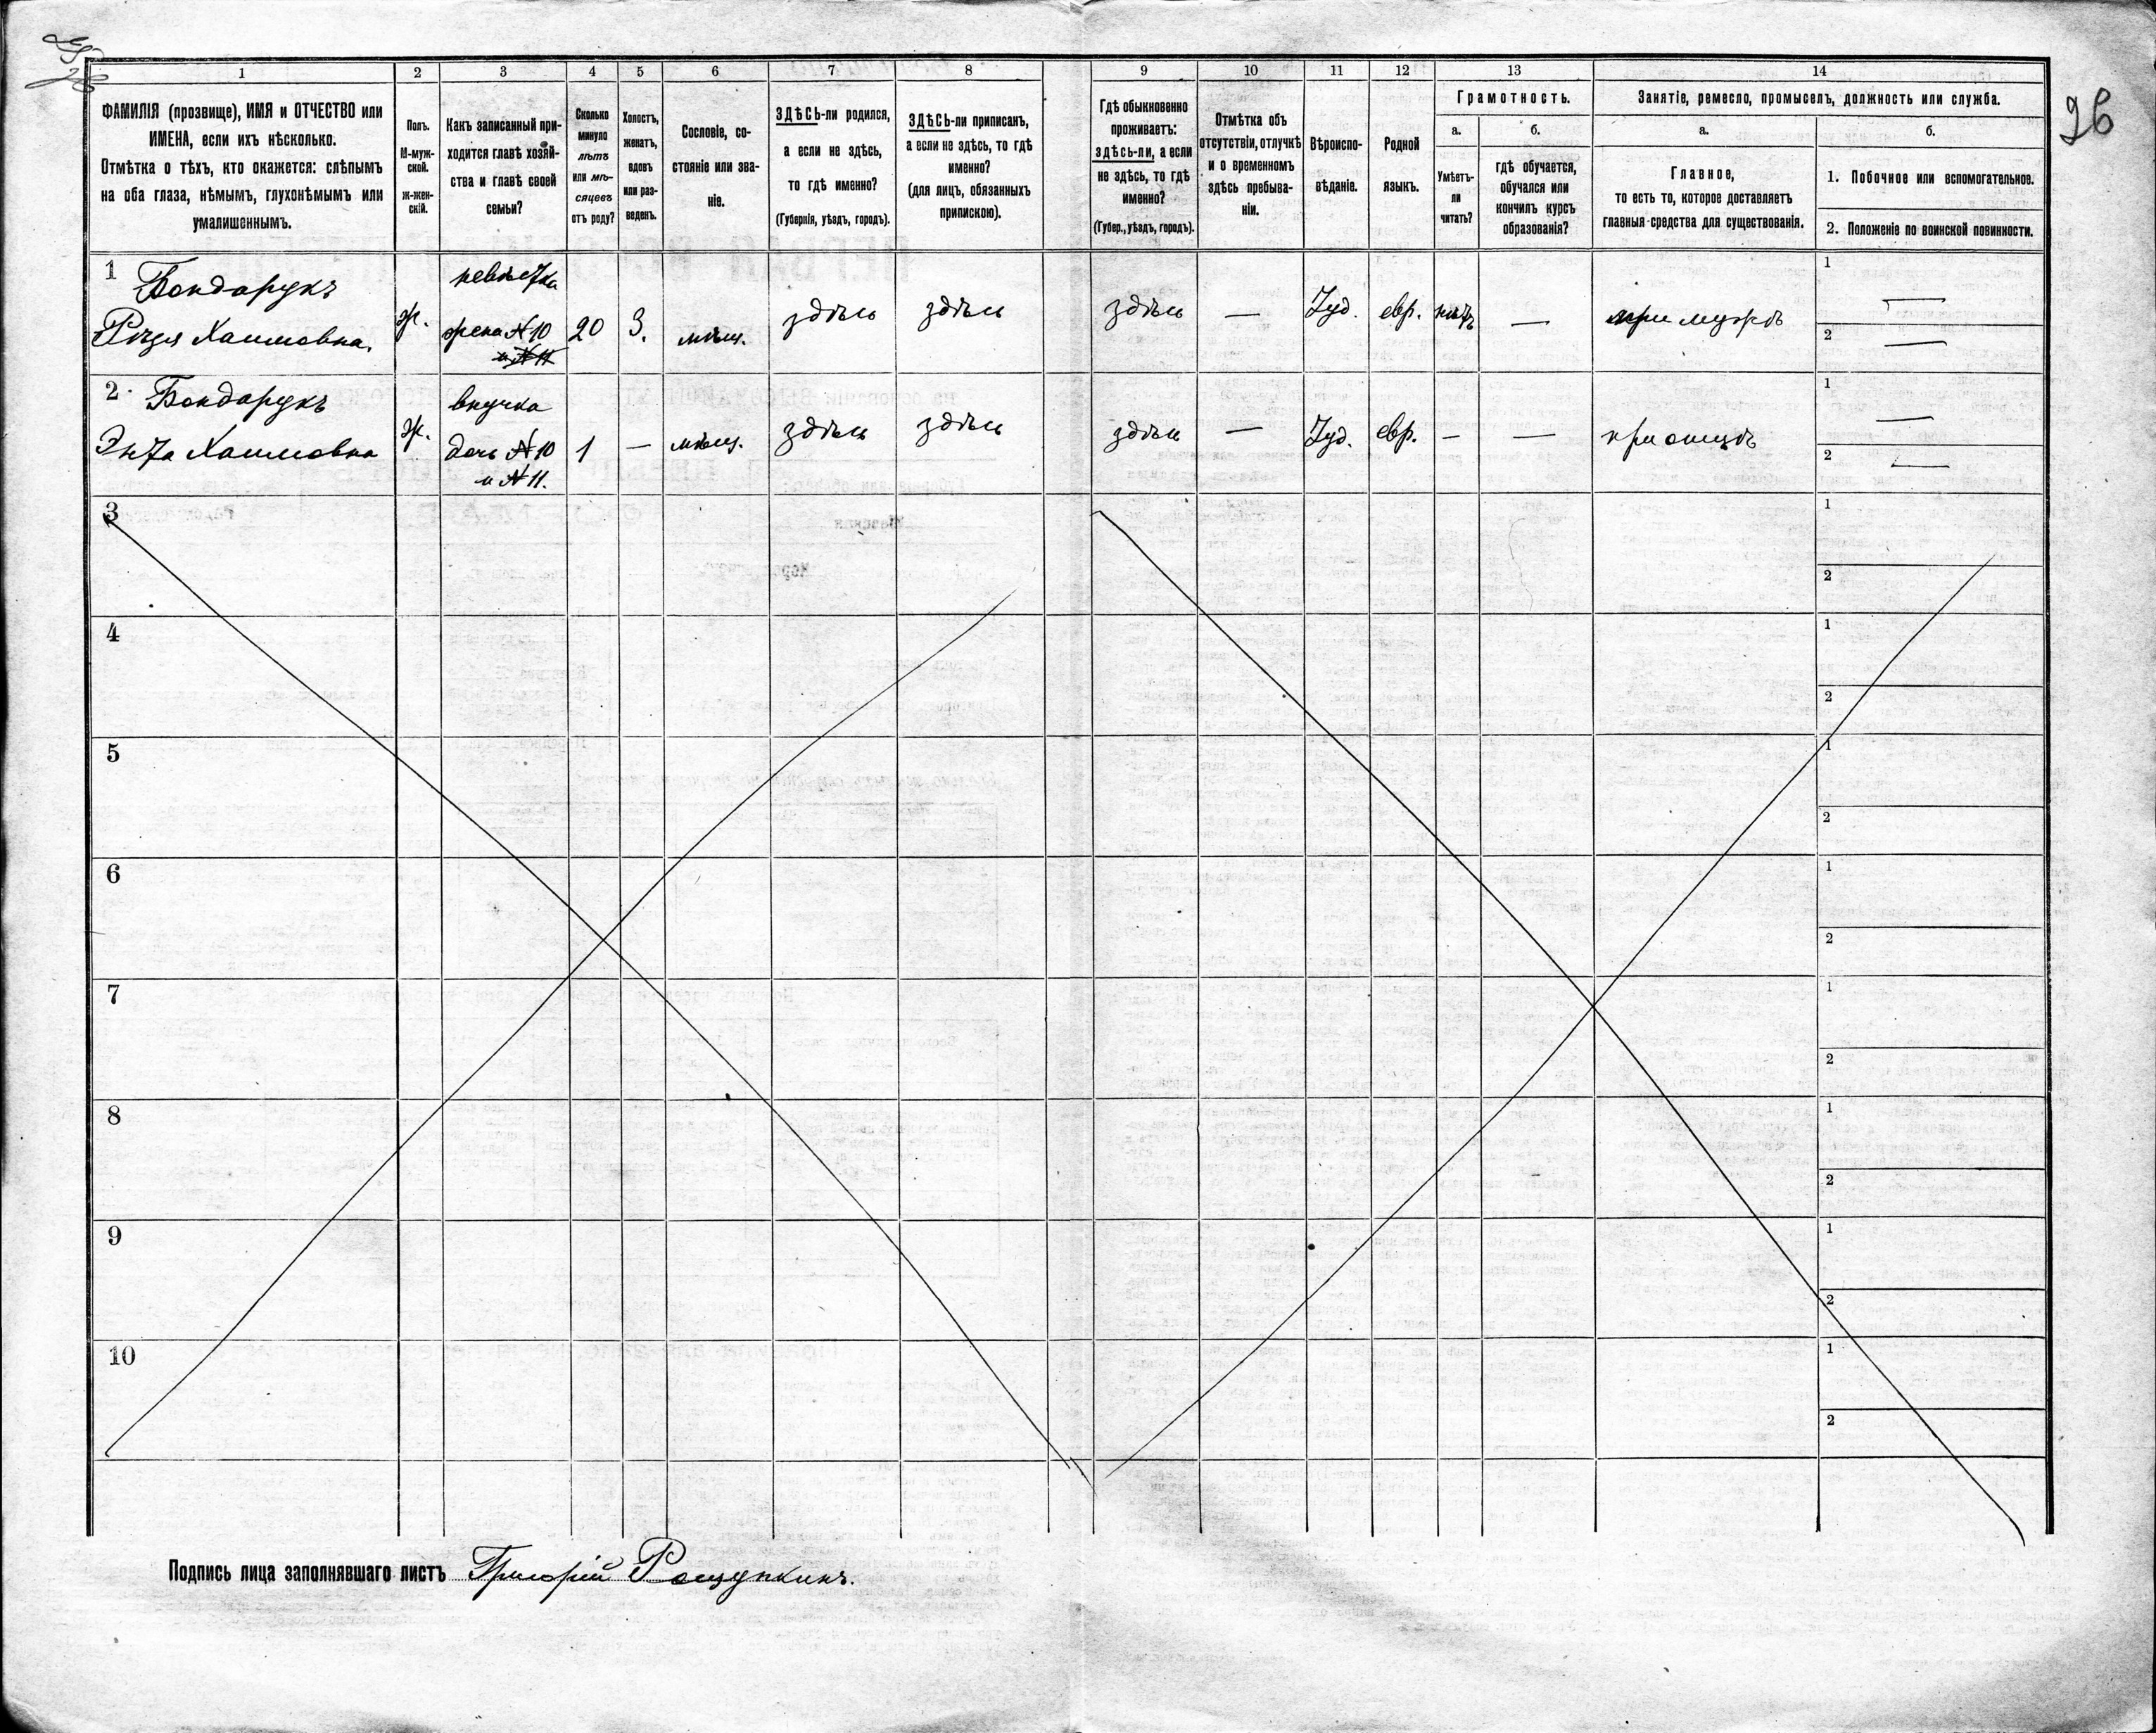 1
2
3
4
5
6
7
8
9
10
11
12
13
14
26
ФАМИЛІЯ (прозвище), ИМЯ и ОТЧЕСТВО или
ИМЕНА, если ихъ нѣсколько.
Отмѣтка о тѣхъ, кто окажется: слѣпымъ
на оба глаза, нѣмымъ, глухонѣмымъ или
умалишеннымъ.
Полъ.
М-муж-
ской.
ж-жен-
скій.
Какъ записанный при-
ходится главѣ хозяй-
ства и главѣ своей
семьи?
Сколько
минуло
лѣтъ
или мѣ-
сяцевъ
отъ роду?
Холостъ,
женатъ,
вдовъ
или раз-
веденъ.
Сословіе, со-
стояніе или зва-
ніе.
ЗДѢСЬ-ли родился,
а если не здѣсь,
то гдѣ именно?
(Губернія, уѣздъ, городъ).
ЗДѢСЬ-ли приписан,
а если не здѣсь, то гдѣ
именно?
(для лицъ, обязанныхъ
припискою).
Гдѣ обыкновенно
проживаетъ:
здѣсь-ли, а если
не здѣсь, то гдѣ
именно?
(Губер., уѣздъ, городъ).
Отмѣтка объ
отсутствіи, отлучкѣ
и о временномъ
здѣсь пребыва-
ніи.
Вѣроиспо-
вѣданіе.
Родной
языкъ.
Грамотность.
а.
Умѣетъ-
ли
читать?
б.
гдѣ обучается,
обучался или
кончилъ курсъ
образованія?
Занятіе, ремесло, промыселъ, должность или служба.
а.
Главное,
то есть то, которое доставляетъ
главныя средства для существованія.
б.
1. Побочное или вспомогательное.
2. Положеніе по воинской повинности.
1
Бондарукъ
Рѣзя Хаимовна.
ж.
невѣстка
жена №10
и №11
20
З.
мѣщ.
здѣсь
здѣсь
здѣсь
—
Іуд.
евр.
нѣтъ
—
при мужѣ
1
—
2
—
2
Бондарукъ
Энта Хаимовна
ж.
внучка
дочь №10
и №11.
1
—
мѣщ.
здѣсь
здѣсь
здѣсь
—
Іуд.
евр.
—
—
при отцѣ
1
—
2
—
3
1
2
4
1
2
5
1
2
6
1
2
7
1
2
8
1
2
9
1
2
10
1
2
Подпись лица заполнявшаго листъ Григорій Рощупкинъ.